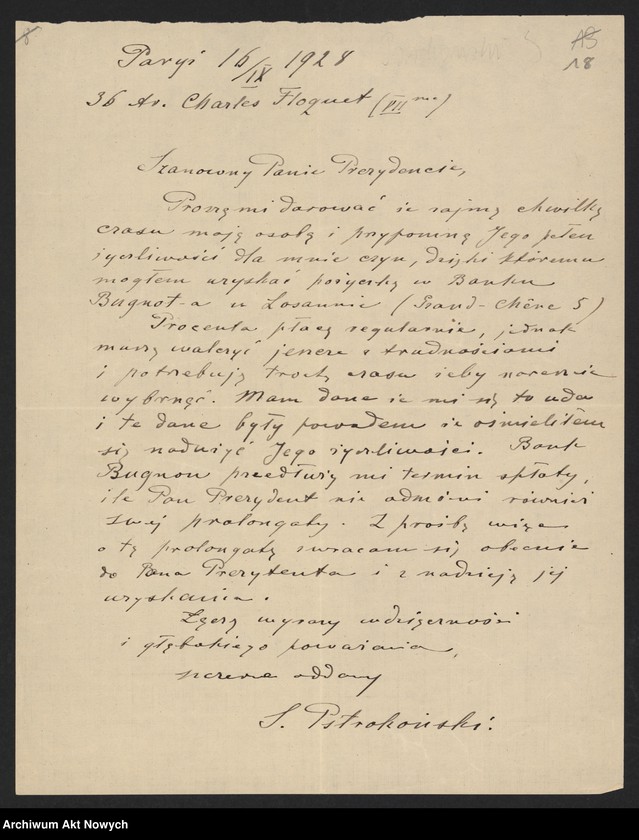 8
AB
18
Paryż 16/IX 1928
36 Av. Charles Floquet (VII me.)
Szanowny Panie Prezydencie,
Proszę mi darować że zajmę chwilkę
czasu moją osobą i przypomnę Jego pełen
życzliwości dla mnie czyn, dzięki któremu
mogłem uzyskać pożyczkę w Banku
Bugnot-a w Losannie (Grand-Chêne 5)
Procenta płacę regularnie, jednak
muszę walczyć jeszcze z trudnościami
i potrzebuję trochę czasu żeby nareszcie
wybrnąć. Mam dane że mi się to uda
i te dane były powodem że ośmieliłem
się nadużyć Jego życzliwości. Bank
Bugnon przedłuży mi termin spłaty,
ile Pan Prezydent nie odmówi również
swej prolongaty. Z prośbą więc
o tę prolongatę zwracam się obecnie
do Pana Prezytenta i z nadzieją jej
uzyskania.
Łączę wyrazy wdzięczności
i głębokiego poważania,
szczerze oddany
S. Pstrokoński.
Archiwum Akt Nowych